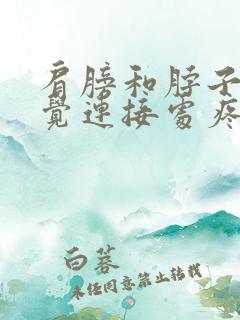 肩膀和脖子
覺連接處疼
白蓉
未经同意禁止转载